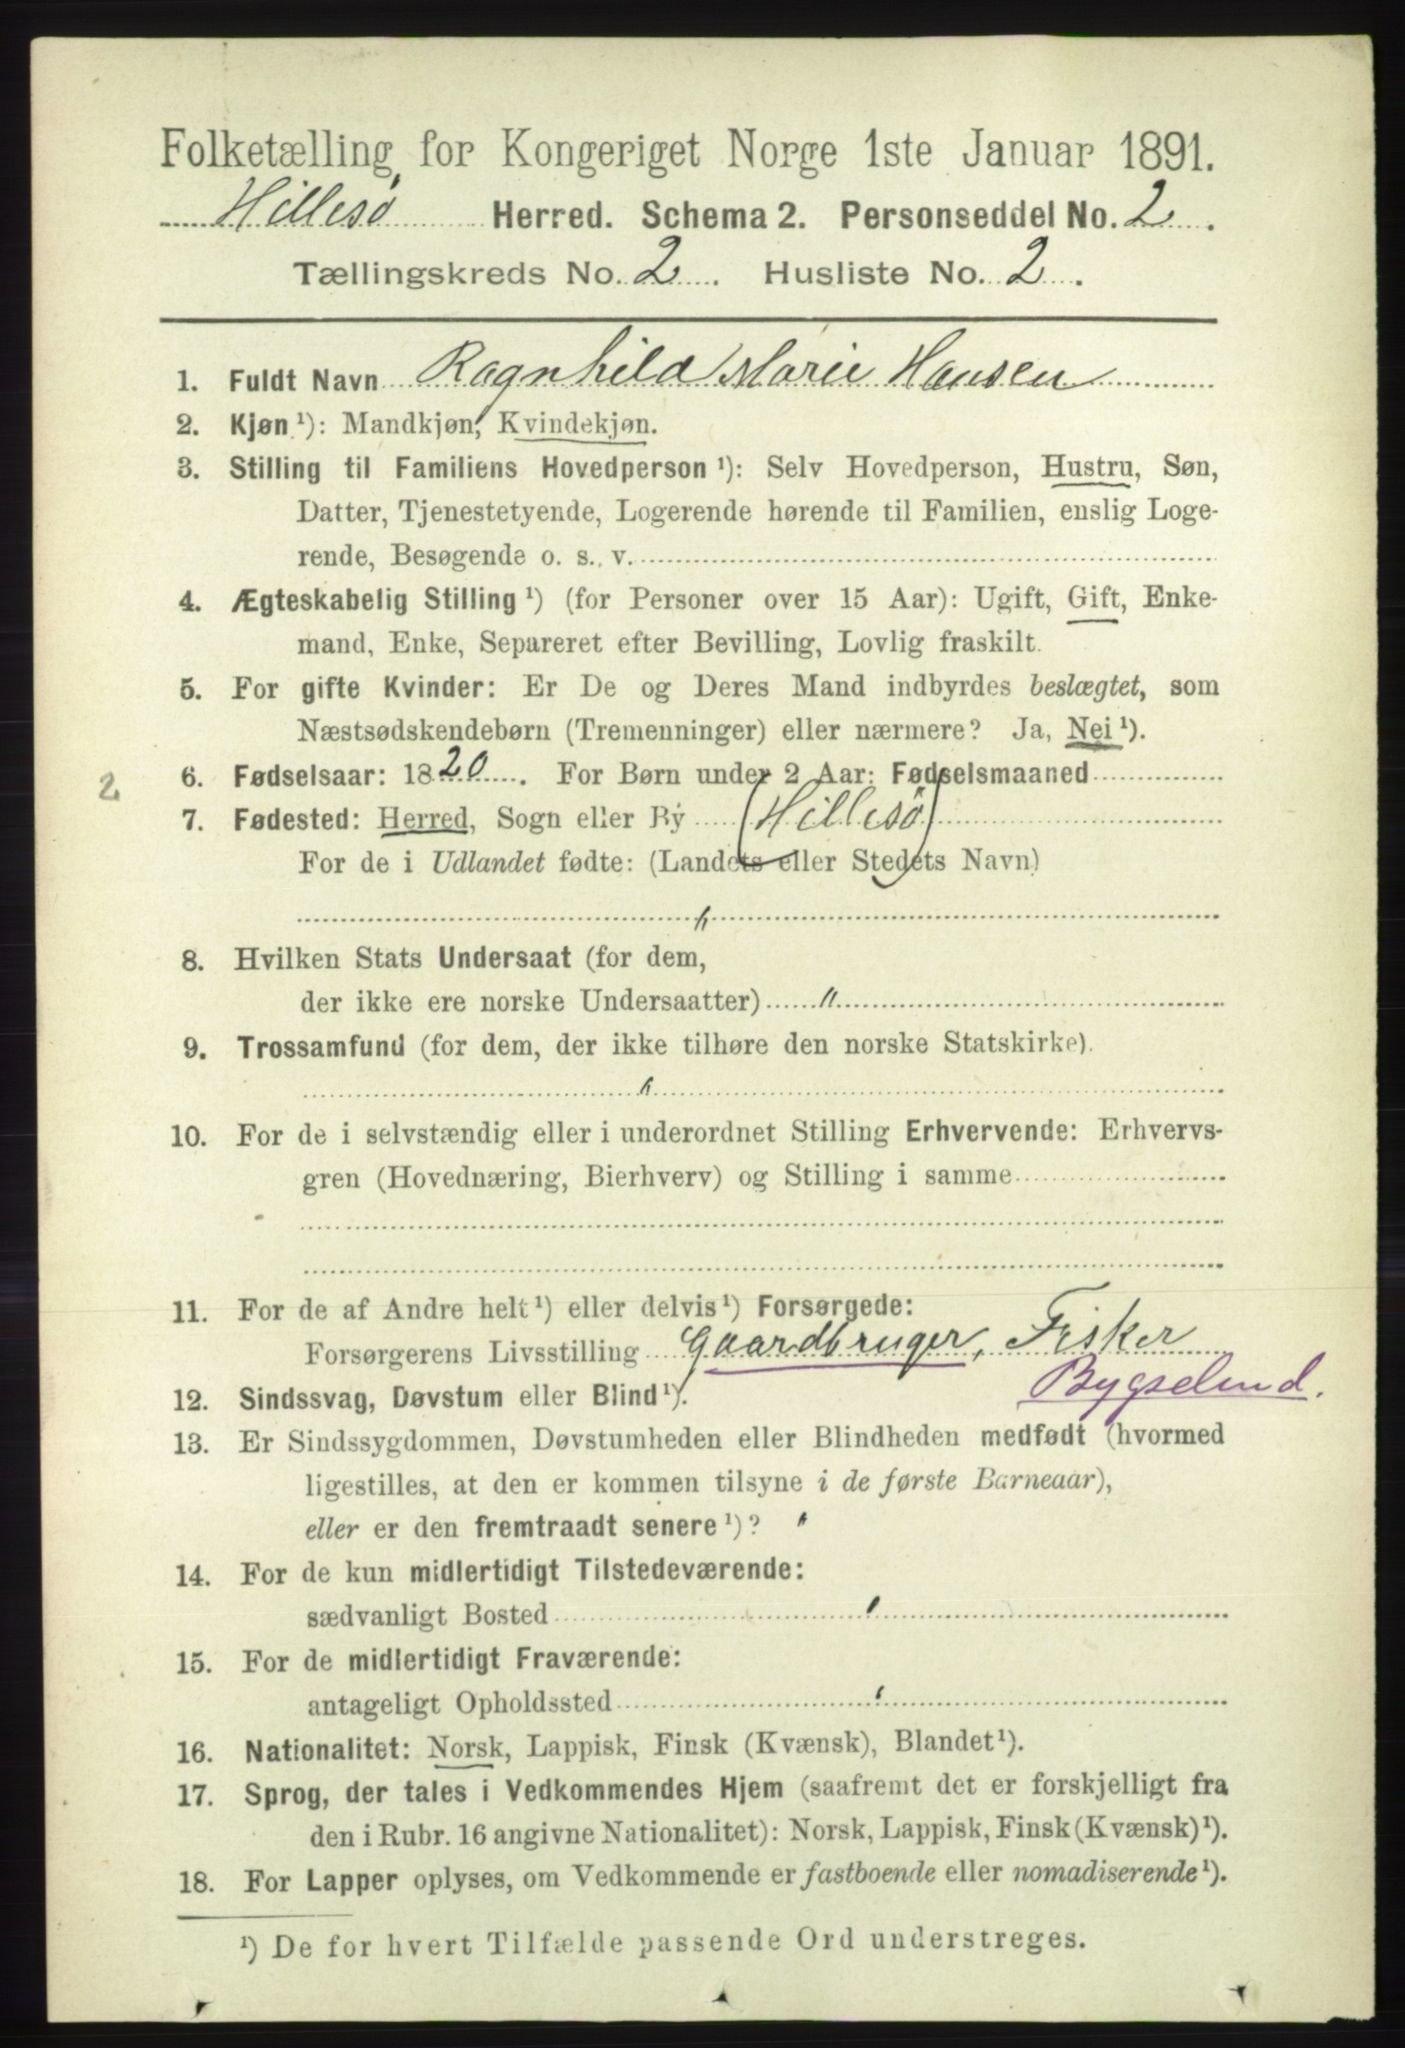 Folketælling for Kongeriget Norge 1ste Januar 1891.
Hillesø Herred. Schema 2. Personseddel No. 2.
Tællingskreds No. 2. Husliste No. 2.
1. Fuldt Navn Ragnhild Marie Hansen
2. Kjøn ¹): Mandkjøn, Kvindekjøn.
3. Stilling til Familiens Hovedperson ¹): Selv Hovedperson, Hustru, Søn,
Datter, Tjenestetyende, Logerende hørende til Familien, enslig Loge-
rende, Besøgende o. s. v.
4. Ægteskabelig Stilling ¹) (for Personer over 15 Aar): Ugift, Gift, Enke-
mand, Enke, Separeret efter Bevilling, Lovlig fraskilt.
5. For gifte Kvinder: Er De og Deres Mand indbyrdes beslægtet, som
Næstsødskendebørn (Tremenninger) eller nærmere? Ja, Nei ¹).
2 6. Fødselsaar: 1820. For Børn under 2 Aar: Fødselsmaaned
7. Fødested: Herred, Sogn eller By (Hillesø)
For de i Udlandet fødte: (Landets eller Stedets Navn)
"
8. Hvilken Stats Undersaat (for dem,
der ikke ere norske Undersaatter) "
9. Trossamfund (for dem, der ikke tilhøre den norske Statskirke).
"
10. For de i selvstændig eller i underordnet Stilling Erhvervende: Erhvervs-
gren (Hovednæring, Bierhverv) og Stilling i samme
11. For de af Andre helt ¹) eller delvis ¹) Forsørgede:
Forsørgerens Livsstilling Gaardbruger, Fisker
Bygselmd.
12. Sindssvag, Døvstum eller Blind ¹).
13. Er Sindssygdommen, Døvstumheden eller Blindheden medfødt (hvormed
ligestilles, at den er kommen tilsyne i de første Barneaar),
eller er den fremtraadt senere ¹)? "
14. For de kun midlertidigt Tilstedeværende:
sædvanligt Bosted "
15. For de midlertidigt Fraværende:
antageligt Opholdssted "
16. Nationalitet: Norsk, Lappisk, Finsk (Kvænsk), Blandet ¹).
17. Sprog, der tales i Vedkommendes Hjem (saafremt det er forskjelligt fra
den i Rubr. 16 angivne Nationalitet): Norsk, Lappisk, Finsk (Kvænsk) ¹).
18. For Lapper oplyses, om Vedkommende er fastboende eller nomadiserende ¹).
¹) De for hvert Tilfælde passende Ord understreges.